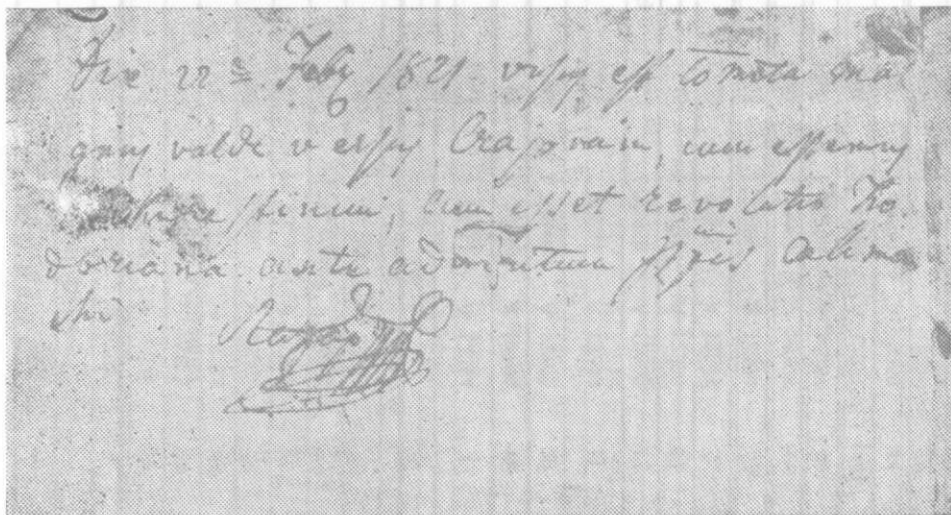 Die 22 = Feby 1821 visus est cometa ma
gnus valde versus Crajovam, cum essemus
cum esset revolutio To
doriana ante adventum Calima
chi